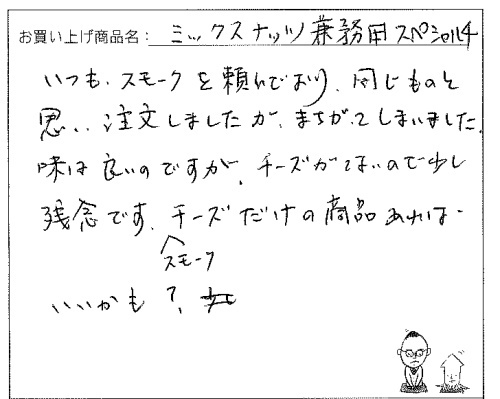 お買い上げ商品名: ミックスナッツ兼務用スペシャル4
いつも、スモークを頼んでおり、同じものと
思い、注文しましたが、まちがってしまいました。
味は良いのですが、チーズがないので少し
残念です、チーズだけの商品あれば、
スモーク
いいかも?、